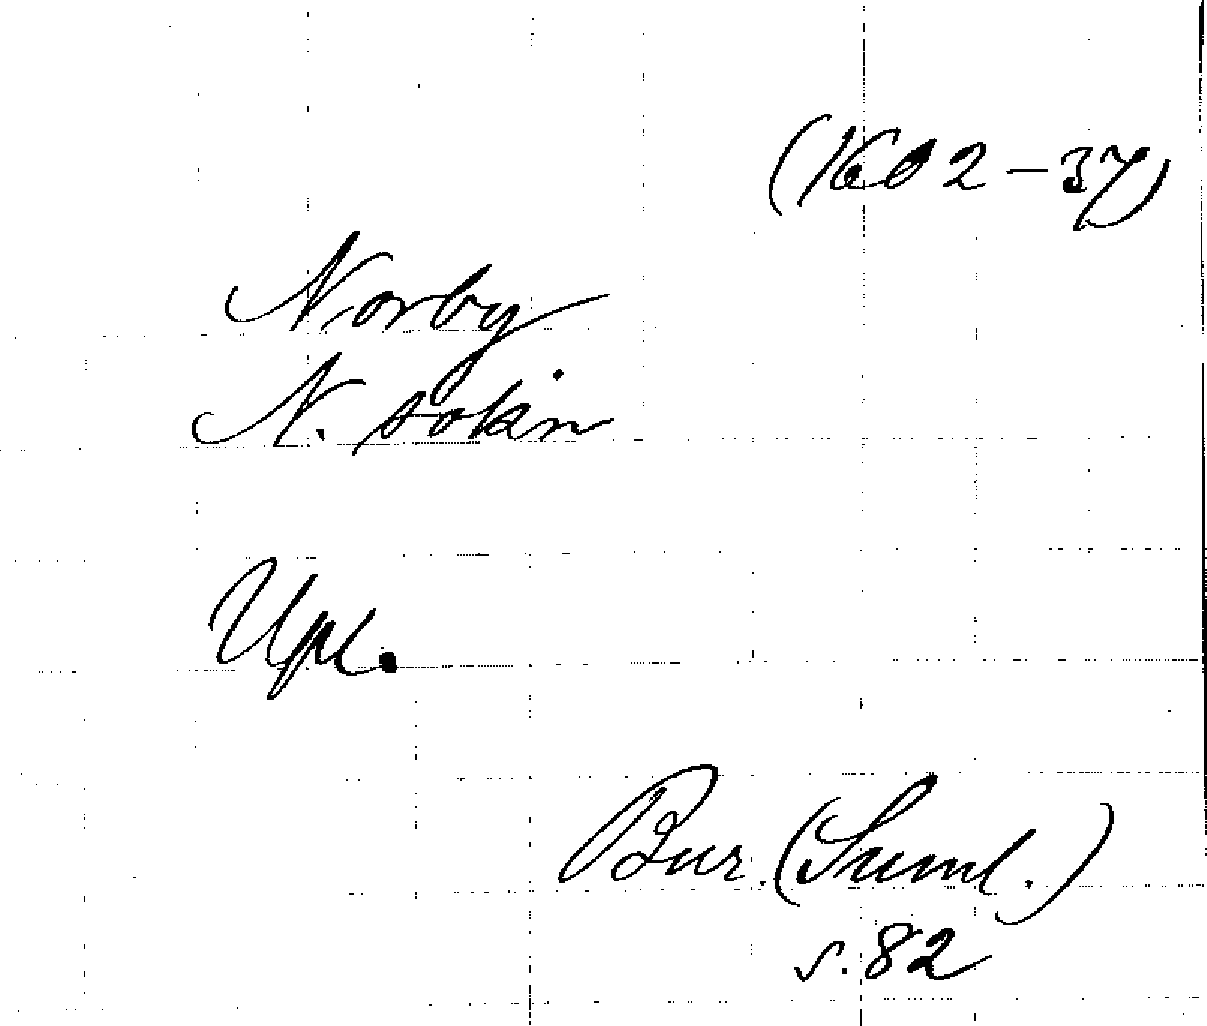 (1602-37)
Norby
N. sokin
Upl.
Bur. (Suml.)
s. 82